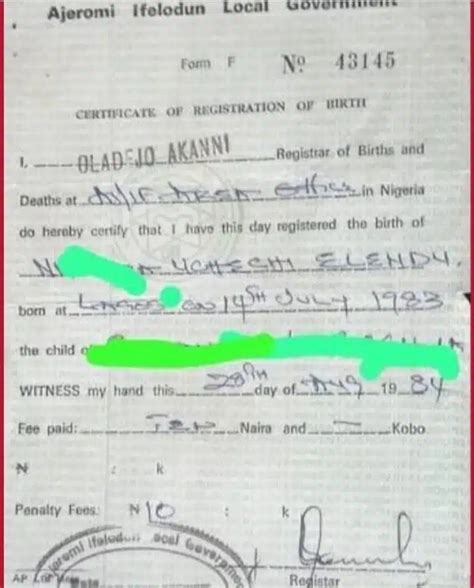 Ajeromi Ifelodun Local Government
Form F № 43145
CERTIFICATE OF REGISTRATION OF BIRTH
I, OLADEJO AKANNI Registrar of Births and
Deaths at Office in Nigeria
do hereby certify that I have this day registered the birth of
UCHECHI ELENDU.
born at Lagos on 14TH July 1983
the child
WITNESS my hand this 28TH day of Aug 19 84
Fee paid: Ten Naira and — Kobo
₦ : k
Penalty Fees: ₦10 : k
Ajeromi Ifelodun Local Government
Registar